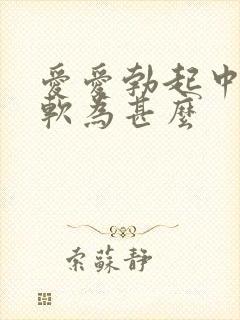 愛愛勃起中
軟為甚麼
索蘇靜